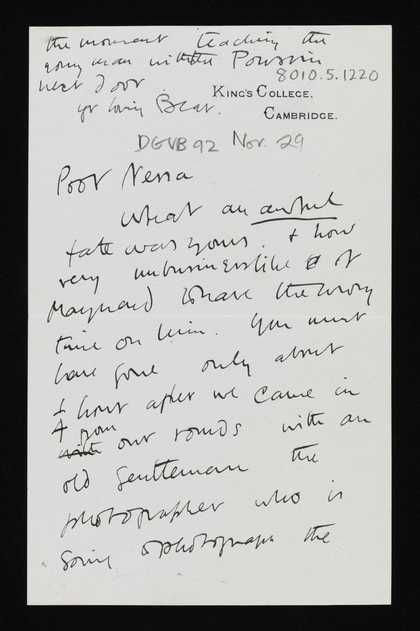 the moment teaching the
young man with the Poussin
next door
yr loving Bear.
8010.5.1220
KING'S COLLEGE,
CAMBRIDGE.
DGVB92 Nov. 29
Poor Nessa
What an awful
fate was yours. & how
very unbusinesslike of
Maynard to have the wrong
time on him. You must
have gone only about
¼ hour after we came in
with from our rounds with an
old gentleman the
photographer who is
going to photograph the